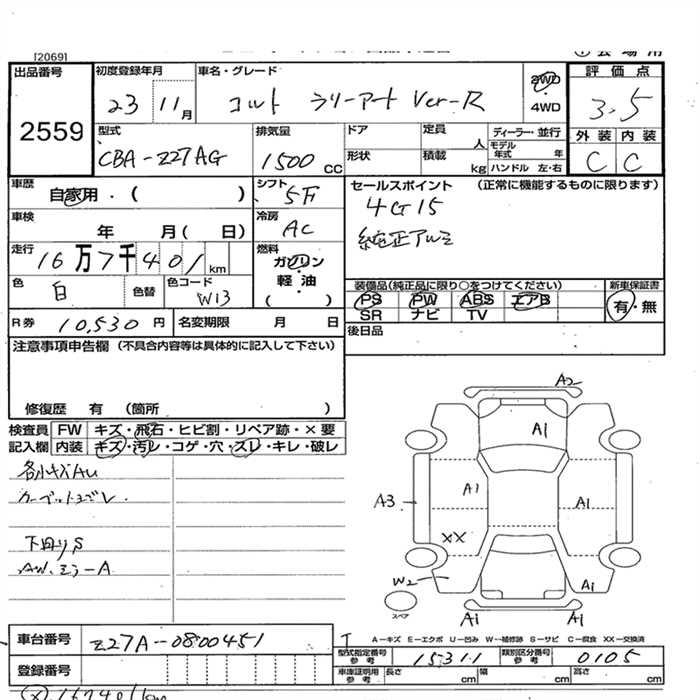 [20691
出品番号 2559
初度登録年月 23 11月
車名・グレード コルト ラリーアート Ver-R
2WD
4WD
評価点 3.5
外装 内装
C C
型式 CBA-Z27AG
排気量 1500 CC
ドア
形状
定員 人
積載 kg
ディーラー・並行
モデル年式 年
ハンドル 左・右
車歴 自家用・( )
シフト 5F
セールスポイント (正常に機能するものに限ります)
4G15
純正アルミ
車検 年 月( 日)
冷房 AC
走行 16万7千401km
燃料 ガソリン・軽油 ( )
色 白
色替
色コード W13
装備品(純正品に限り○をつけてください)
PS PW ABS エアB
SR ナビ TV
新車保証書 有・無
R券 10,530円
名変期限 月 日
後日品
注意事項申告欄 (不具合内容等は具体的に記入して下さい)
修復歴 有 (箇所 )
検査員記入欄
FW キズ・飛石・ヒビ割・リペア跡・×要
内装 キズ・汚レ・コゲ・穴・スレ・キレ・破レ
各小キズAU
カーペットヨゴレ
下回りS
AW.ミラーA
A2
A1
A1
A1
A3
XX
W2
A1
A1
A1
スペア
A-キズ E-エクボ U-凹み W-補修跡 S-サビ C-腐食 XX-交換済
車台番号 Z27A-0800451
登録番号
型式指定番号 参考 15311
類別区分番号 参考 0105
車庫証明用 参考 長さ cm 幅 cm 高さ cm